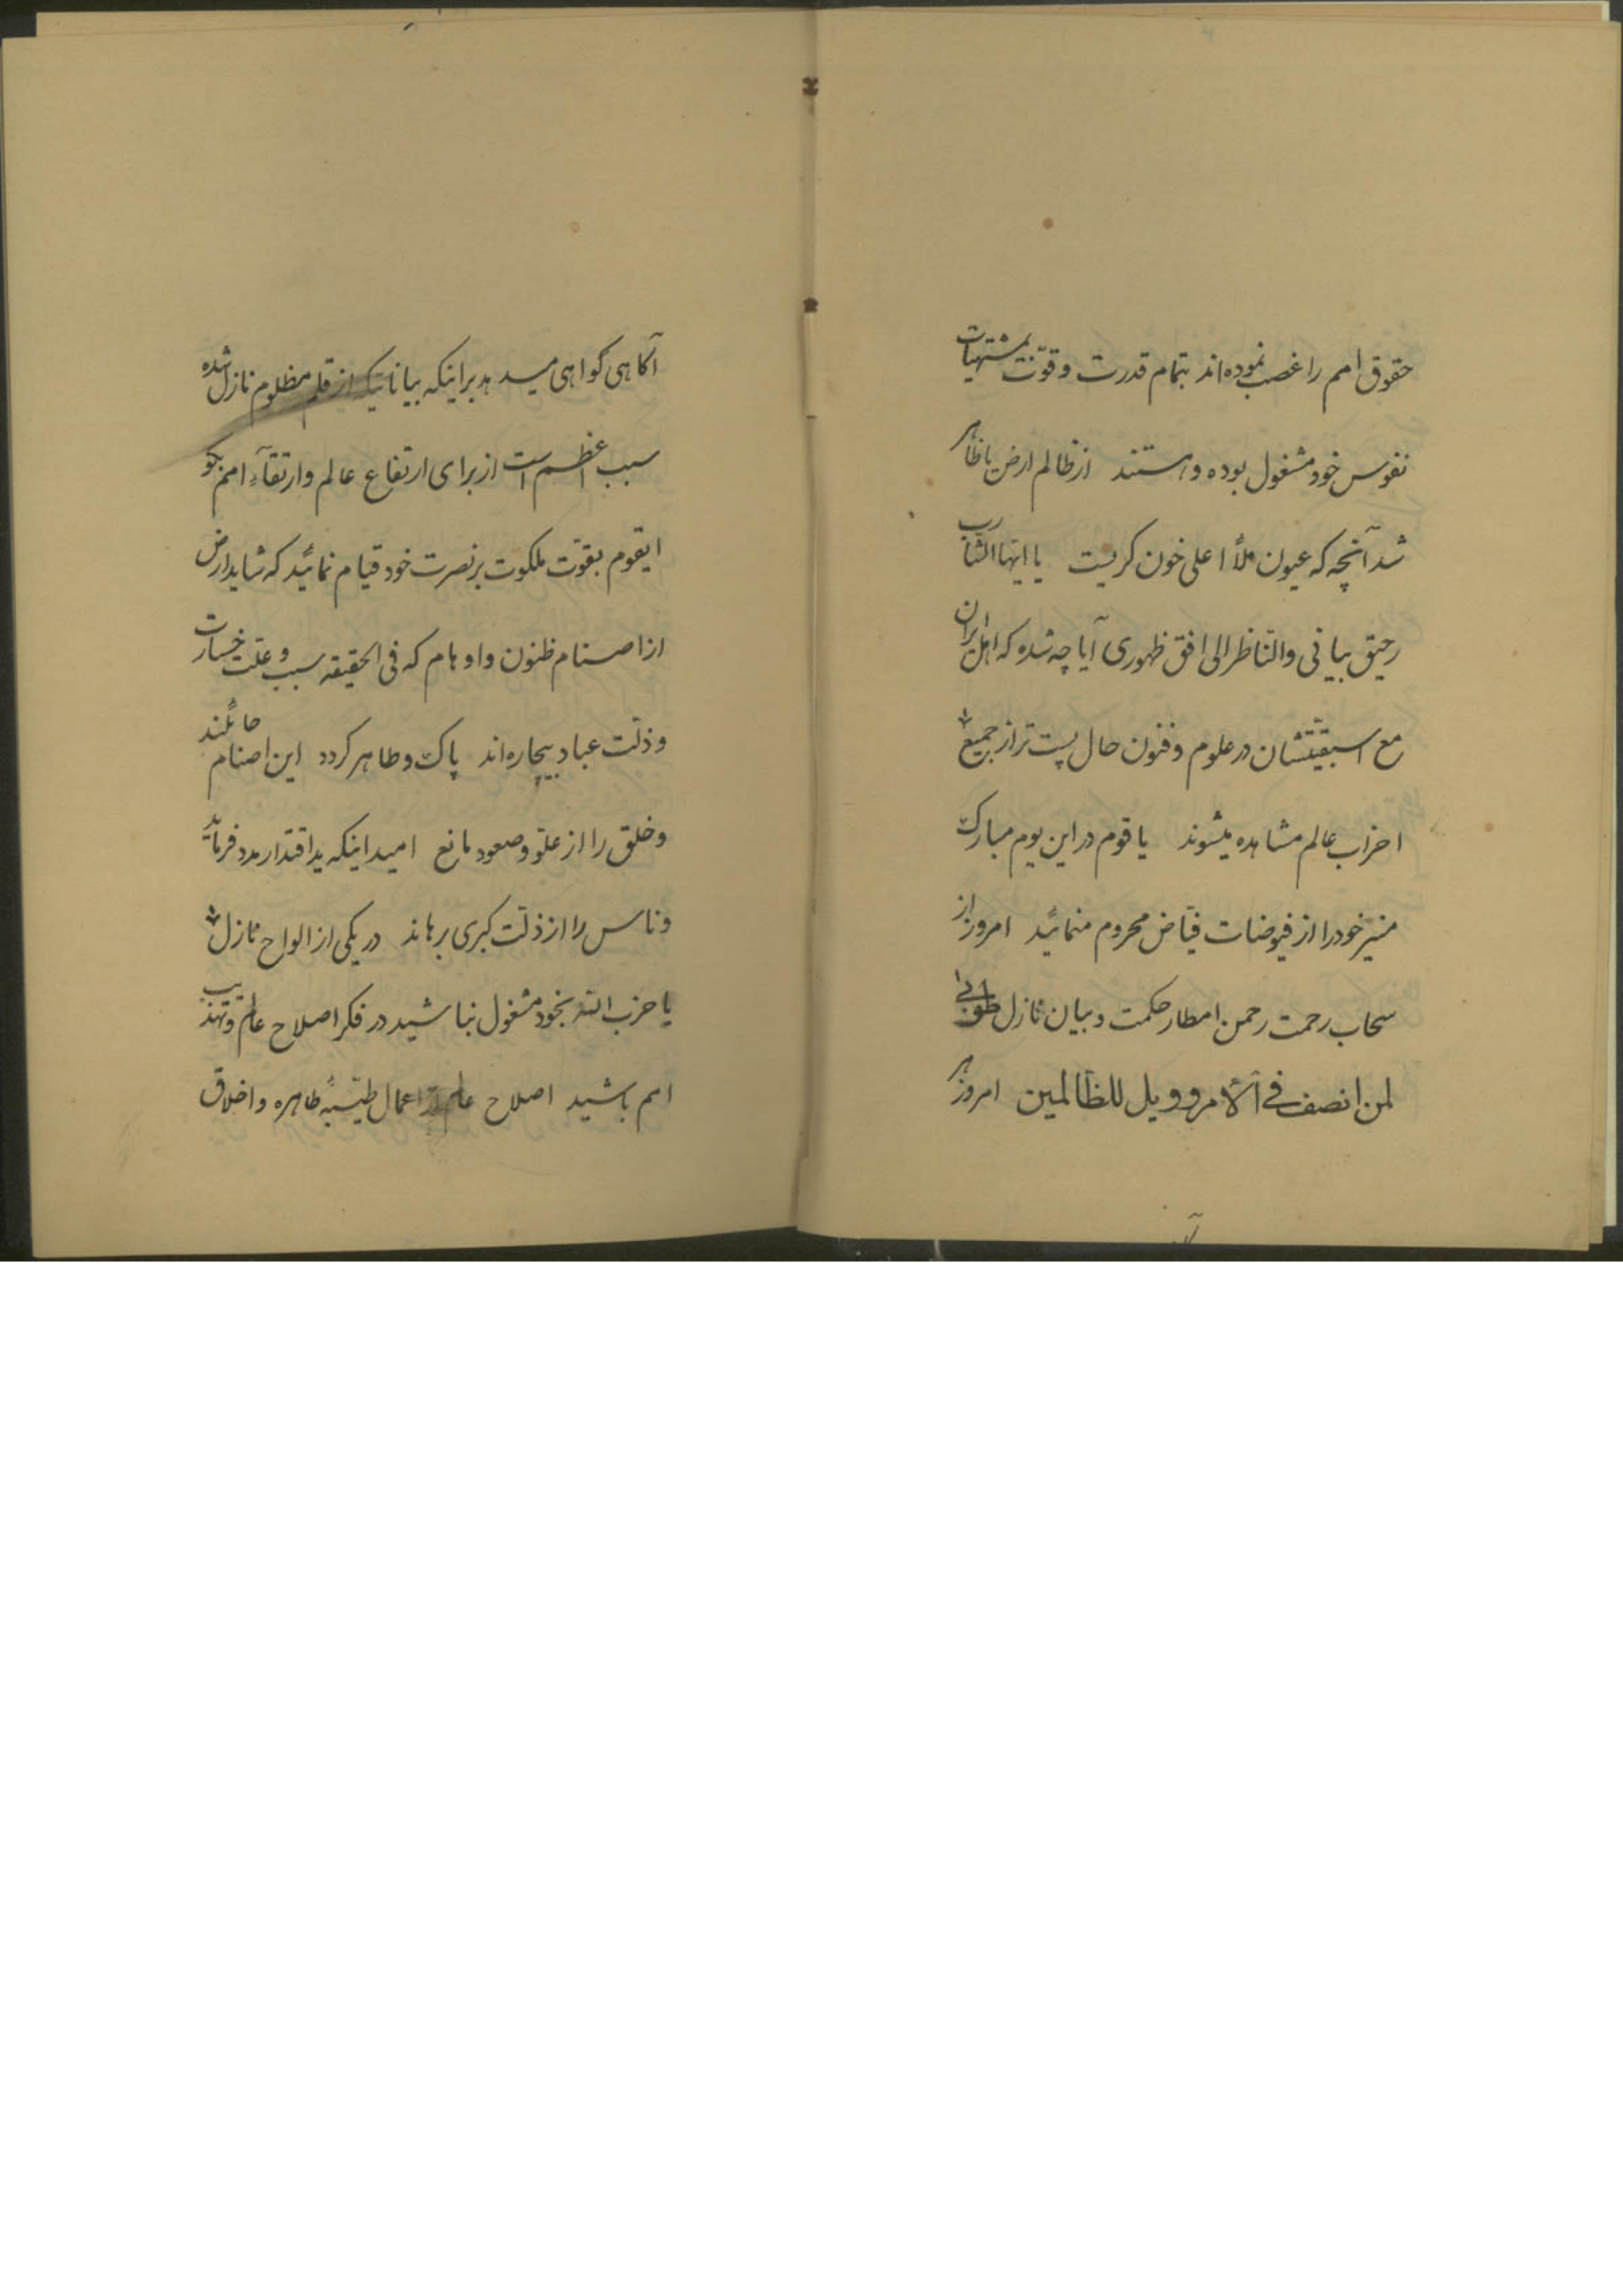 حقوق امم را غصب نموده‌اند بتمام قدرت و قوّت بمشتهیات
نفوس خود مشغول بوده و هستند از ظالم ارض یا ظاهر
شد آنچه که عیون ملأ اعلی خون گریست یا ایّها الشّارب
رحیق بیانی والنّاظر الی افق ظهوری آیا چه شده که اهل ایران
مع اسبقیّتشان در علوم و فنون حال پست‌تر از جمیع
احزاب عالم مشاهده میشوند یا قوم در این یوم مبارک
منیر خود را از فیوضات فیّاض محروم منمائید امروز از
سحاب رحمت رحمن امطار حکمت و بیان نازل طوبی
لمن انصف فی الأمر و ویل للظّالمین امروز هر
آگاهی گواهی میدهد بر اینکه بیاناتیکه از قلم مظلوم نازل شده
سبب اعظم است از برای ارتفاع عالم و ارتقآء امم بگو
ایقوم بقوّت ملکوت بر نصرت خود قیام نمائید که شاید ارض
از اصنام ظنون و اوهام که فی الحقیقه سبب و علّت خسارت
و ذلّت عباد بیچاره‌اند پاک و طاهر گردد این اصنام حائلند
و خلق را از علوّ و صعود مانع امید اینکه ید اقتدار مدد فرماید
و ناس را از ذلّت کبری برهاند در یکی از الواح نازل
یا حزب الله بخود مشغول نباشید در فکر اصلاح عالم و تهذیب
امم باشید اصلاح عالم از اعمال طیّبهٔ طاهره و اخلاق